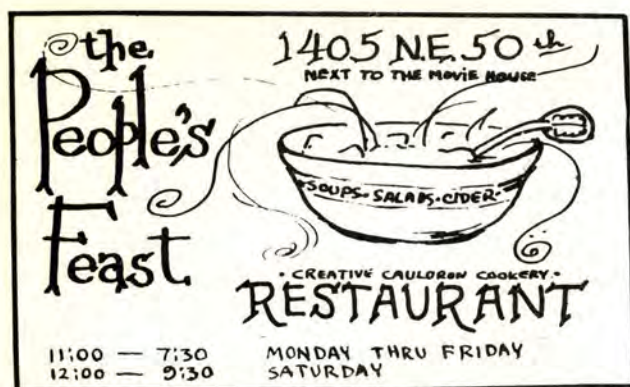 the
People's
Feast
1405 N.E. 50th
NEXT TO THE MOVIE HOUSE
SOUPS · SALADS · CIDER ·
· CREATIVE CAULDRON COOKERY ·
RESTAURANT
11:00 — 7:30 MONDAY THRU FRIDAY
12:00 — 9:30 SATURDAY